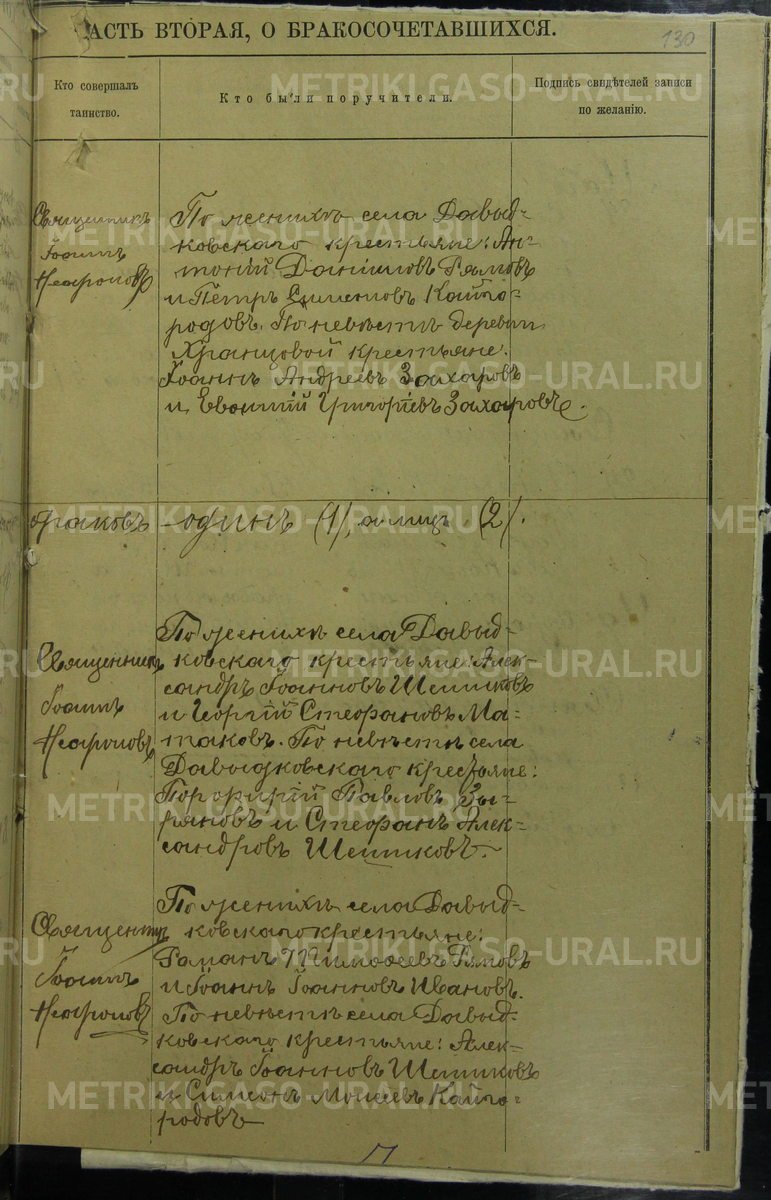 АСТЬ ВТОРАЯ, О БРАКОСОЧЕТАВШИХСЯ.
130
Кто совершалъ
таинство.
Кто были поручители.
Подпись свидѣтелей записи
по желанію.
Священникъ
Іоаннъ
По женихѣ села Давыд-
ковскаго крестьяне: Ан-
тоній Даніиловъ Рямовъ
и Петръ Симеоновъ Кайго-
родовъ. По невѣстѣ деревни
Хранцовой крестьяне.
Іоаннъ Андреевъ Захаровъ
и Евѳимій Григоріевъ Захаровъ.
браковъ – одинъ (1), а лицъ (2).
Священникъ
Іоаннъ
По женихѣ села Давыд-
ковскаго крестьяне: Алек-
сандръ Іоанновъ
и Георгій Стефановъ Ма-
таковъ. По невѣстѣ села
Давыдковскаго крестьяне:
Порфирій Павловъ Зы-
ряновъ и Стефанъ Алек-
сандровъ
Священникъ
Іоаннъ
По женихѣ села Давыд-
ковскаго крестьяне:
Романъ Тимоѳеевъ Рямовъ
и Іоаннъ Іоанновъ Ивановъ.
По невѣстѣ села Давыд-
ковскаго крестьяне: Алек-
сандръ Іоанновъ
и Симеонъ Моисеевъ Кайго-
родовъ
METRIKI.GASO-URAL.RU